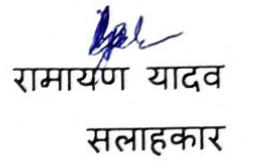 रामायण यादव
सलाहकार